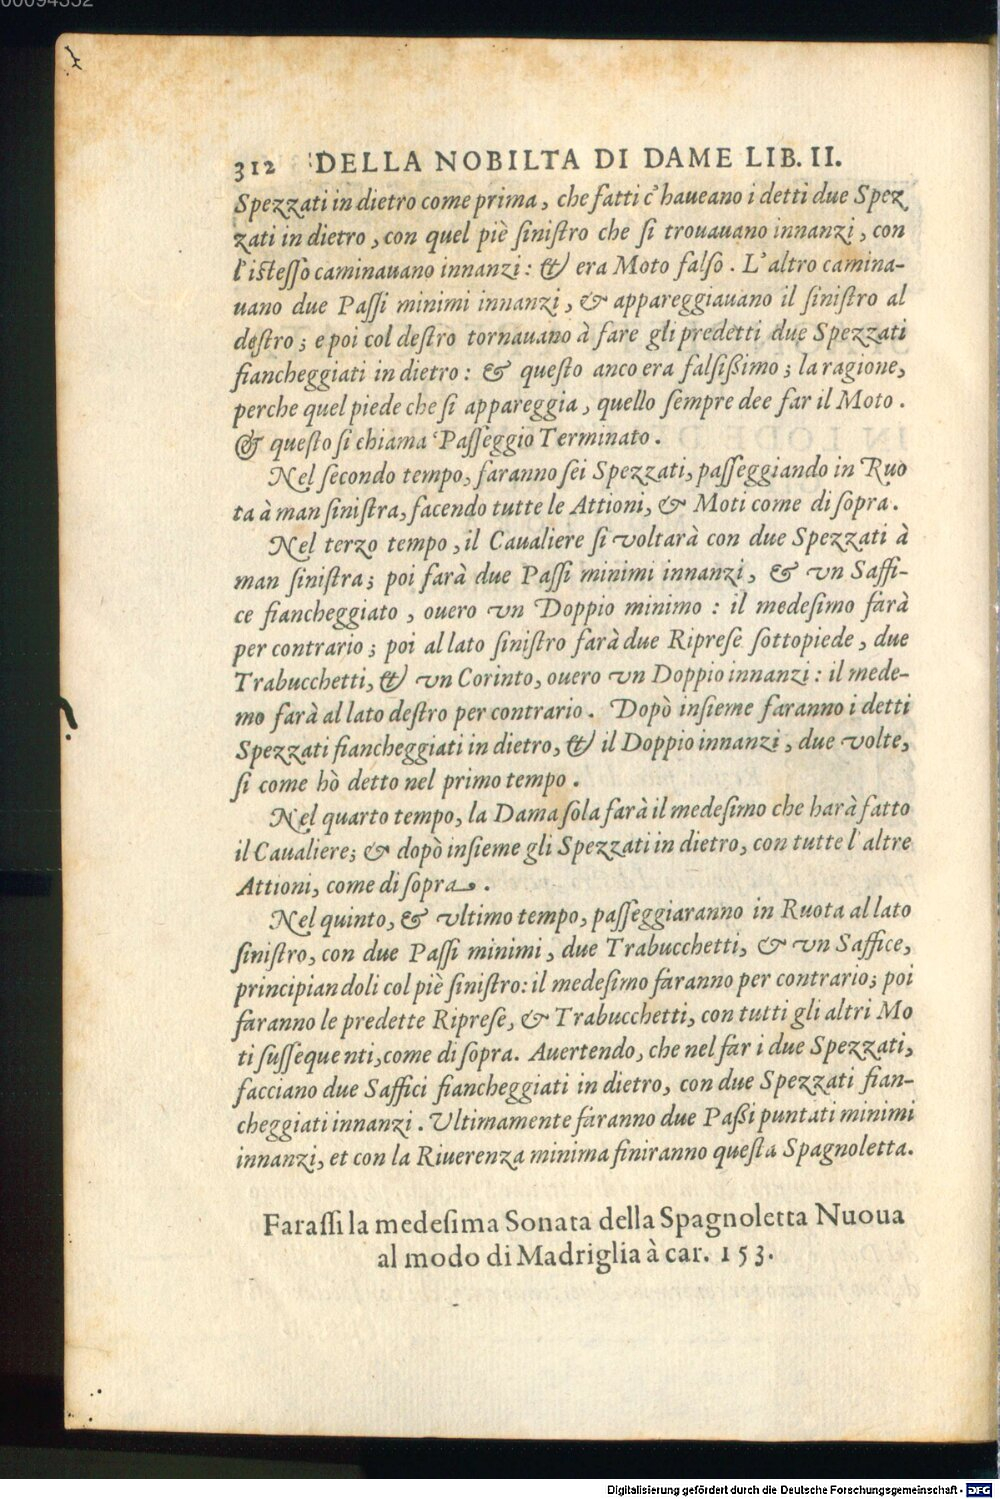 00094352
312 DELLA NOBILTA DI DAME LIB. II.
Spezzati in dietro come prima, che fatti c'haueano i detti due Spez
zati in dietro, con quel piè sinistro che si trouauano innanzi, con
l'istesso caminauano innanzi: & era Moto falso. L'altro camina-
uano due Passi minimi innanzi, & appareggiauano il sinistro al
destro; e poi col destro tornauano à fare gli predetti due Spezzati
fiancheggiati in dietro: & questo anco era falsißimo; la ragione,
perche quel piede che si appareggia, quello sempre dee far il Moto.
& questo si chiama Passeggio Terminato.
Nel secondo tempo, faranno sei Spezzati, passeggiando in Ruo
ta à man sinistra, facendo tutte le Attioni, & Moti come di sopra.
Nel terzo tempo, il Caualiere si voltarà con due Spezzati à
man sinistra; poi farà due Passi minimi innanzi, & vn Saffi-
ce fiancheggiato, ouero vn Doppio minimo: il medesimo farà
per contrario; poi al lato sinistro farà due Riprese sottopiede, due
Trabucchetti, & vn Corinto, ouero vn Doppio innanzi: il mede-
mo farà al lato destro per contrario. Dopò insieme faranno i detti
Spezzati fiancheggiati in dietro, & il Doppio innanzi, due volte,
si come hò detto nel primo tempo.
Nel quarto tempo, la Dama sola farà il medesimo che harà fatto
il Caualiere; & dopò insieme gli Spezzati in dietro, con tutte l'altre
Attioni, come di sopra.
Nel quinto, & vltimo tempo, passeggiaranno in Ruota al lato
sinistro, con due Passi minimi, due Trabucchetti, & vn Saffice,
principiandoli col piè sinistro: il medesimo faranno per contrario; poi
faranno le predette Riprese, & Trabucchetti, con tutti gli altri Mo
ti susseque nti, come di sopra. Auertendo, che nel far i due Spezzati,
facciano due Saffici fiancheggiati in dietro, con due Spezzati fian-
cheggiati innanzi. Vltimamente faranno due Paßi puntati minimi
innanzi, et con la Riuerenza minima finiranno questa Spagnoletta.
Farassi la medesima Sonata della Spagnoletta Nuoua
al modo di Madriglia à car. 153.
Digitalisierung gefördert durch die Deutsche Forschungsgemeinschaft - DFG